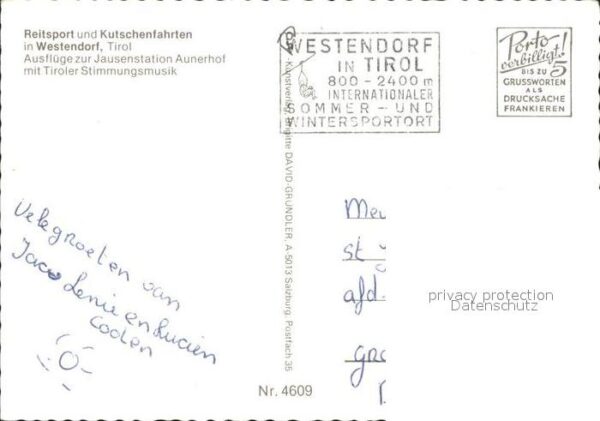 Reitsport und Kutschenfahrten
in Westendorf, Tirol
Ausflüge zur Jausenstation Aunerhof
mit Tiroler Stimmungsmusik
WESTENDORF
IN TIROL
800 - 2400 m
INTERNATIONALER
SOMMER - UND
WINTERSPORTORT
Porto
verbilligt!
BIS ZU 5
GRUSSWORTEN
ALS
DRUCKSACHE
FRANKIEREN
Kunstverlag Brigitte DAVID-GRÜNDLER, A-5013 Salzburg, Postfach 35
Vele groeten van
Jaco Lenie en Lucien
Me
st
afd.
gr
privacy protection
Datenschutz
Nr. 4609